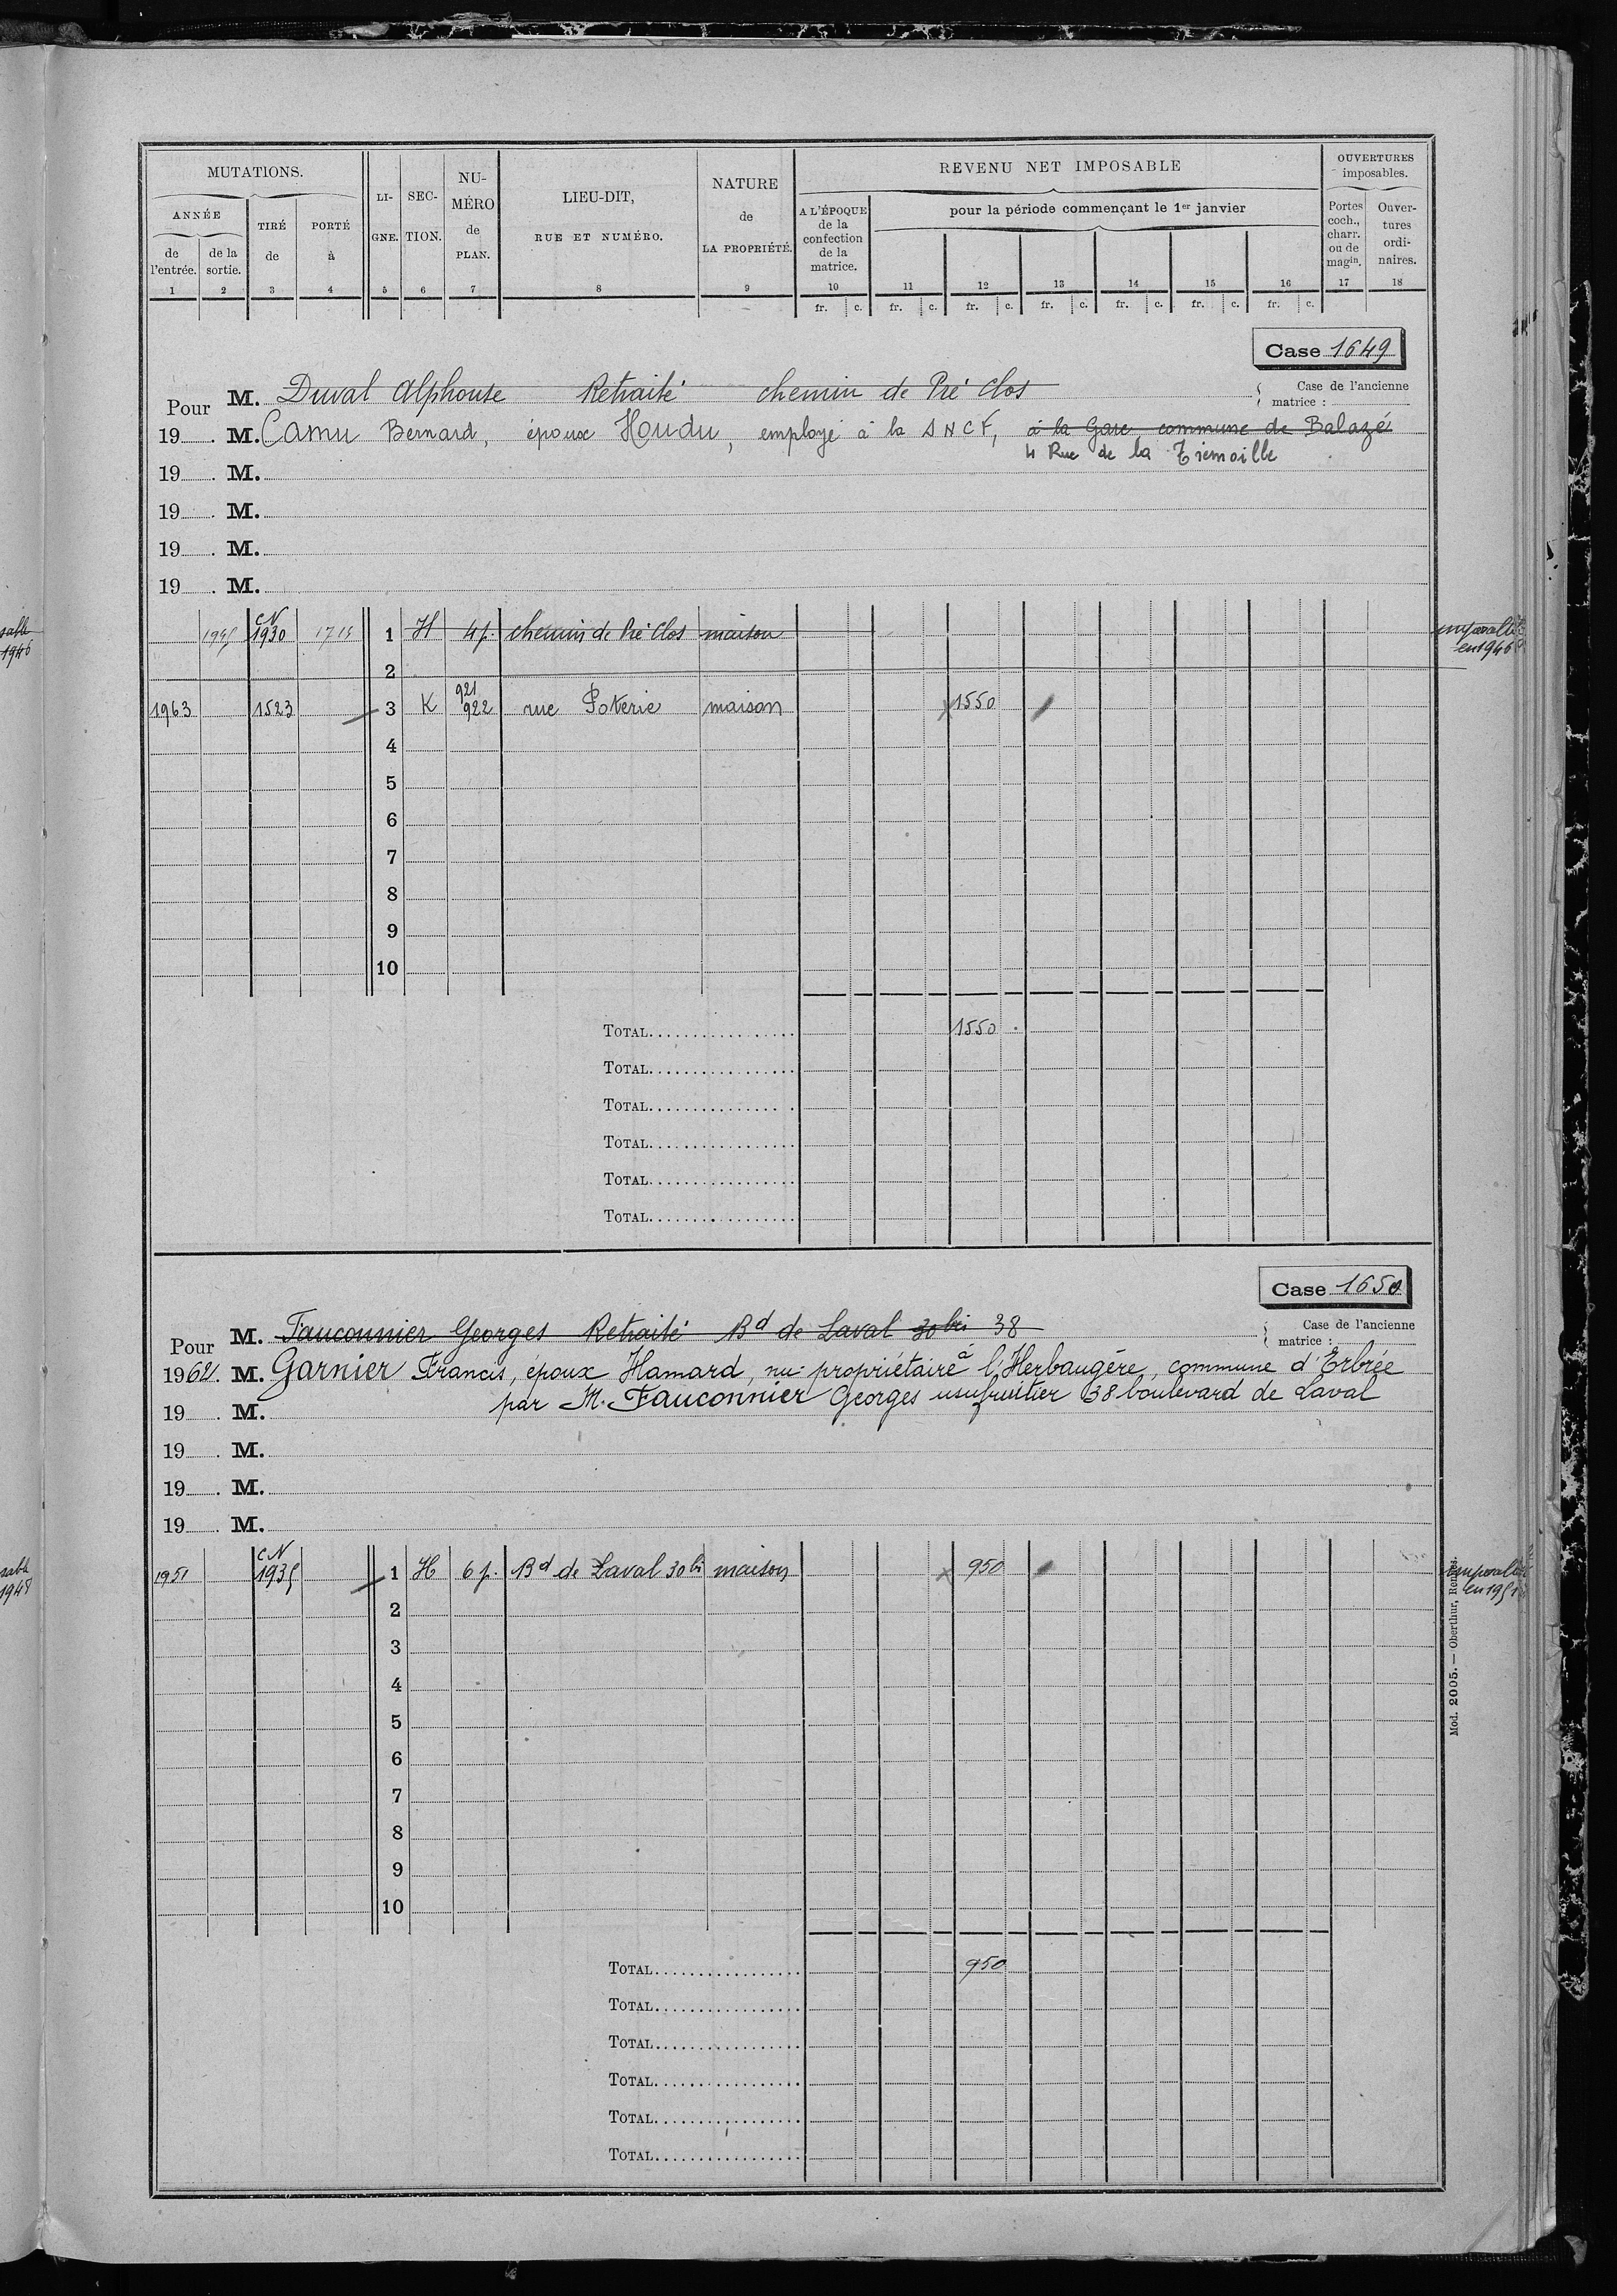 MUTATIONS.
ANNÉE
de l'entrée.
de la sortie.
TIRÉ de
PORTÉ à
LI-GNE.
SEC-TION.
NU-MÉRO de PLAN.
LIEU-DIT, RUE ET NUMÉRO.
NATURE de LA PROPRIÉTÉ.
REVENU NET IMPOSABLE
A L'ÉPOQUE de la confection de la matrice.
pour la période commençant le 1er janvier
OUVERTURES imposables.
Portes coch., charr. ou de magin.
Ouver-tures ordi-naires.
1 2 3 4 5 6 7 8 9 10 11 12 13 14 15 16 17 18
fr. c. fr. c. fr. c. fr. c. fr. c. fr. c. fr. c.
Case 1649
Pour M. Duval Alphonse Retraité chemin de Pré Clos
Case de l'ancienne matrice :
19 . M. Camu Bernard, époux Houdu, employé à la SNCF, à la Gare, commune de Balazé
4 Rue de la Trémoille
19 . M.
19 . M.
19 . M.
19 . M.
1945 CN 1930 1715 1 H 4p. chemin de Pré Clos maison
en 1946
1946
2
1963 1523 3 K 921 922 rue Poterie maison 1550
4
5
6
7
8
9
10
TOTAL 1550
TOTAL
TOTAL
TOTAL
TOTAL
TOTAL
Case 1650
Pour M. Fauconnier Georges Retraité Bd de Laval 30 bis 38
Case de l'ancienne matrice :
1962. M. Garnier Francis, époux Hamard, nu-propriétaire à l'Herbaugère, commune d'Erbrée
19 . M. par M. Fauconnier Georges usufruitier 38 boulevard de Laval
19 . M.
19 . M.
19 . M.
1951 CN 1935 1 H 6p. Bd de Laval 30 bis maison 950
en 1951
1948
2
3
4
5
6
7
8
9
10
TOTAL 950
TOTAL
TOTAL
TOTAL
TOTAL
TOTAL
Mod. 2005. — Oberthur, Rennes.